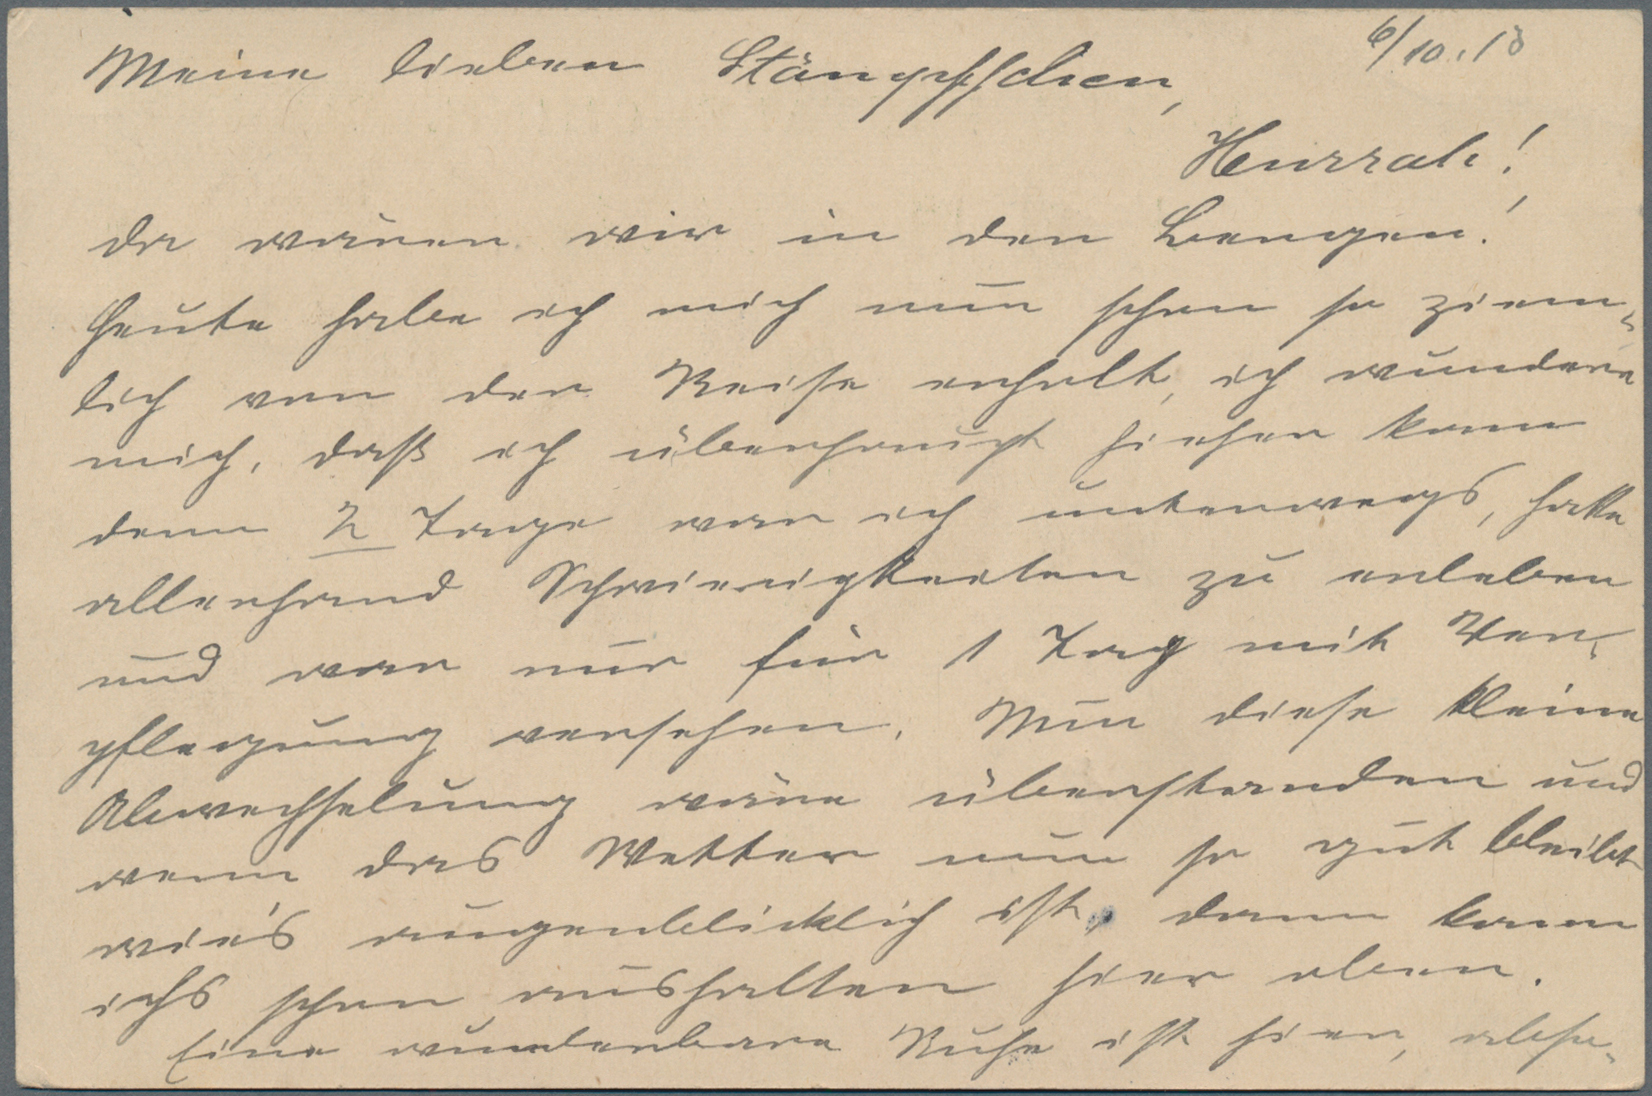 6/10.18
Meine lieben Stämpfchen,
Hurrah!
da wären wir in den Bergen!
Heute habe ich mich nun schon so ziem-
lich von der Reise erholt, ich wundere
mich, daß ich überhaupt hierher kam
denn 2 Tage war ich unterwegs, hatte
allerhand Schwierigkeiten zu erleben
und war nur für 1 Tag mit Ver-
pflegung versehen. Nun diese kleine
Abwechselung wäre überstanden und
wenn das Wetter nun so gut bleibt
wie's augenblicklich ist, dann kann
ichs schon aushalten hier oben.
Eine wunderbare Ruhe ist hier, abso-